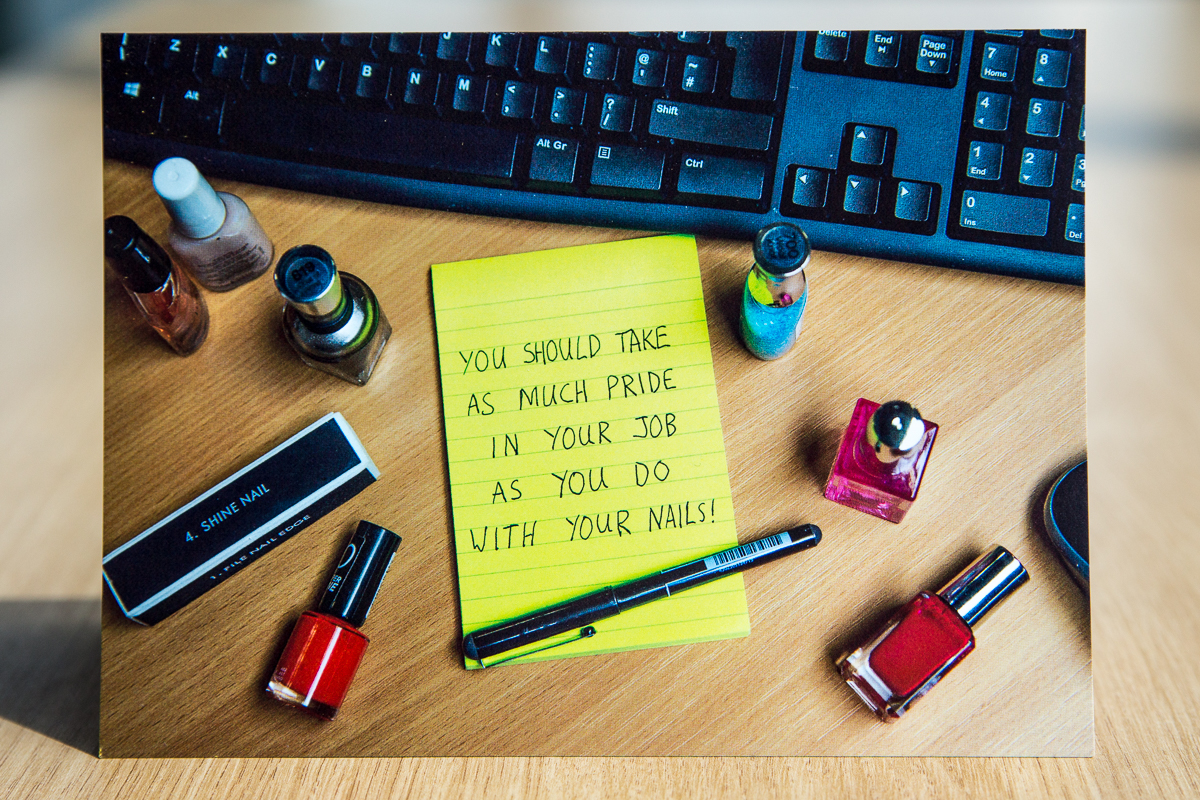 J K L : ; @ ' Delete End Page Down 7 Home 8
Z X C V B N M < , > . ? / ~ # Shift 4 5
Alt Alt Gr Ctrl 1 End 2 3
0 Ins . Del
YOU SHOULD TAKE
AS MUCH PRIDE
IN YOUR JOB
AS YOU DO
WITH YOUR NAILS!
4. SHINE NAIL
1. FILE NAIL EDGE